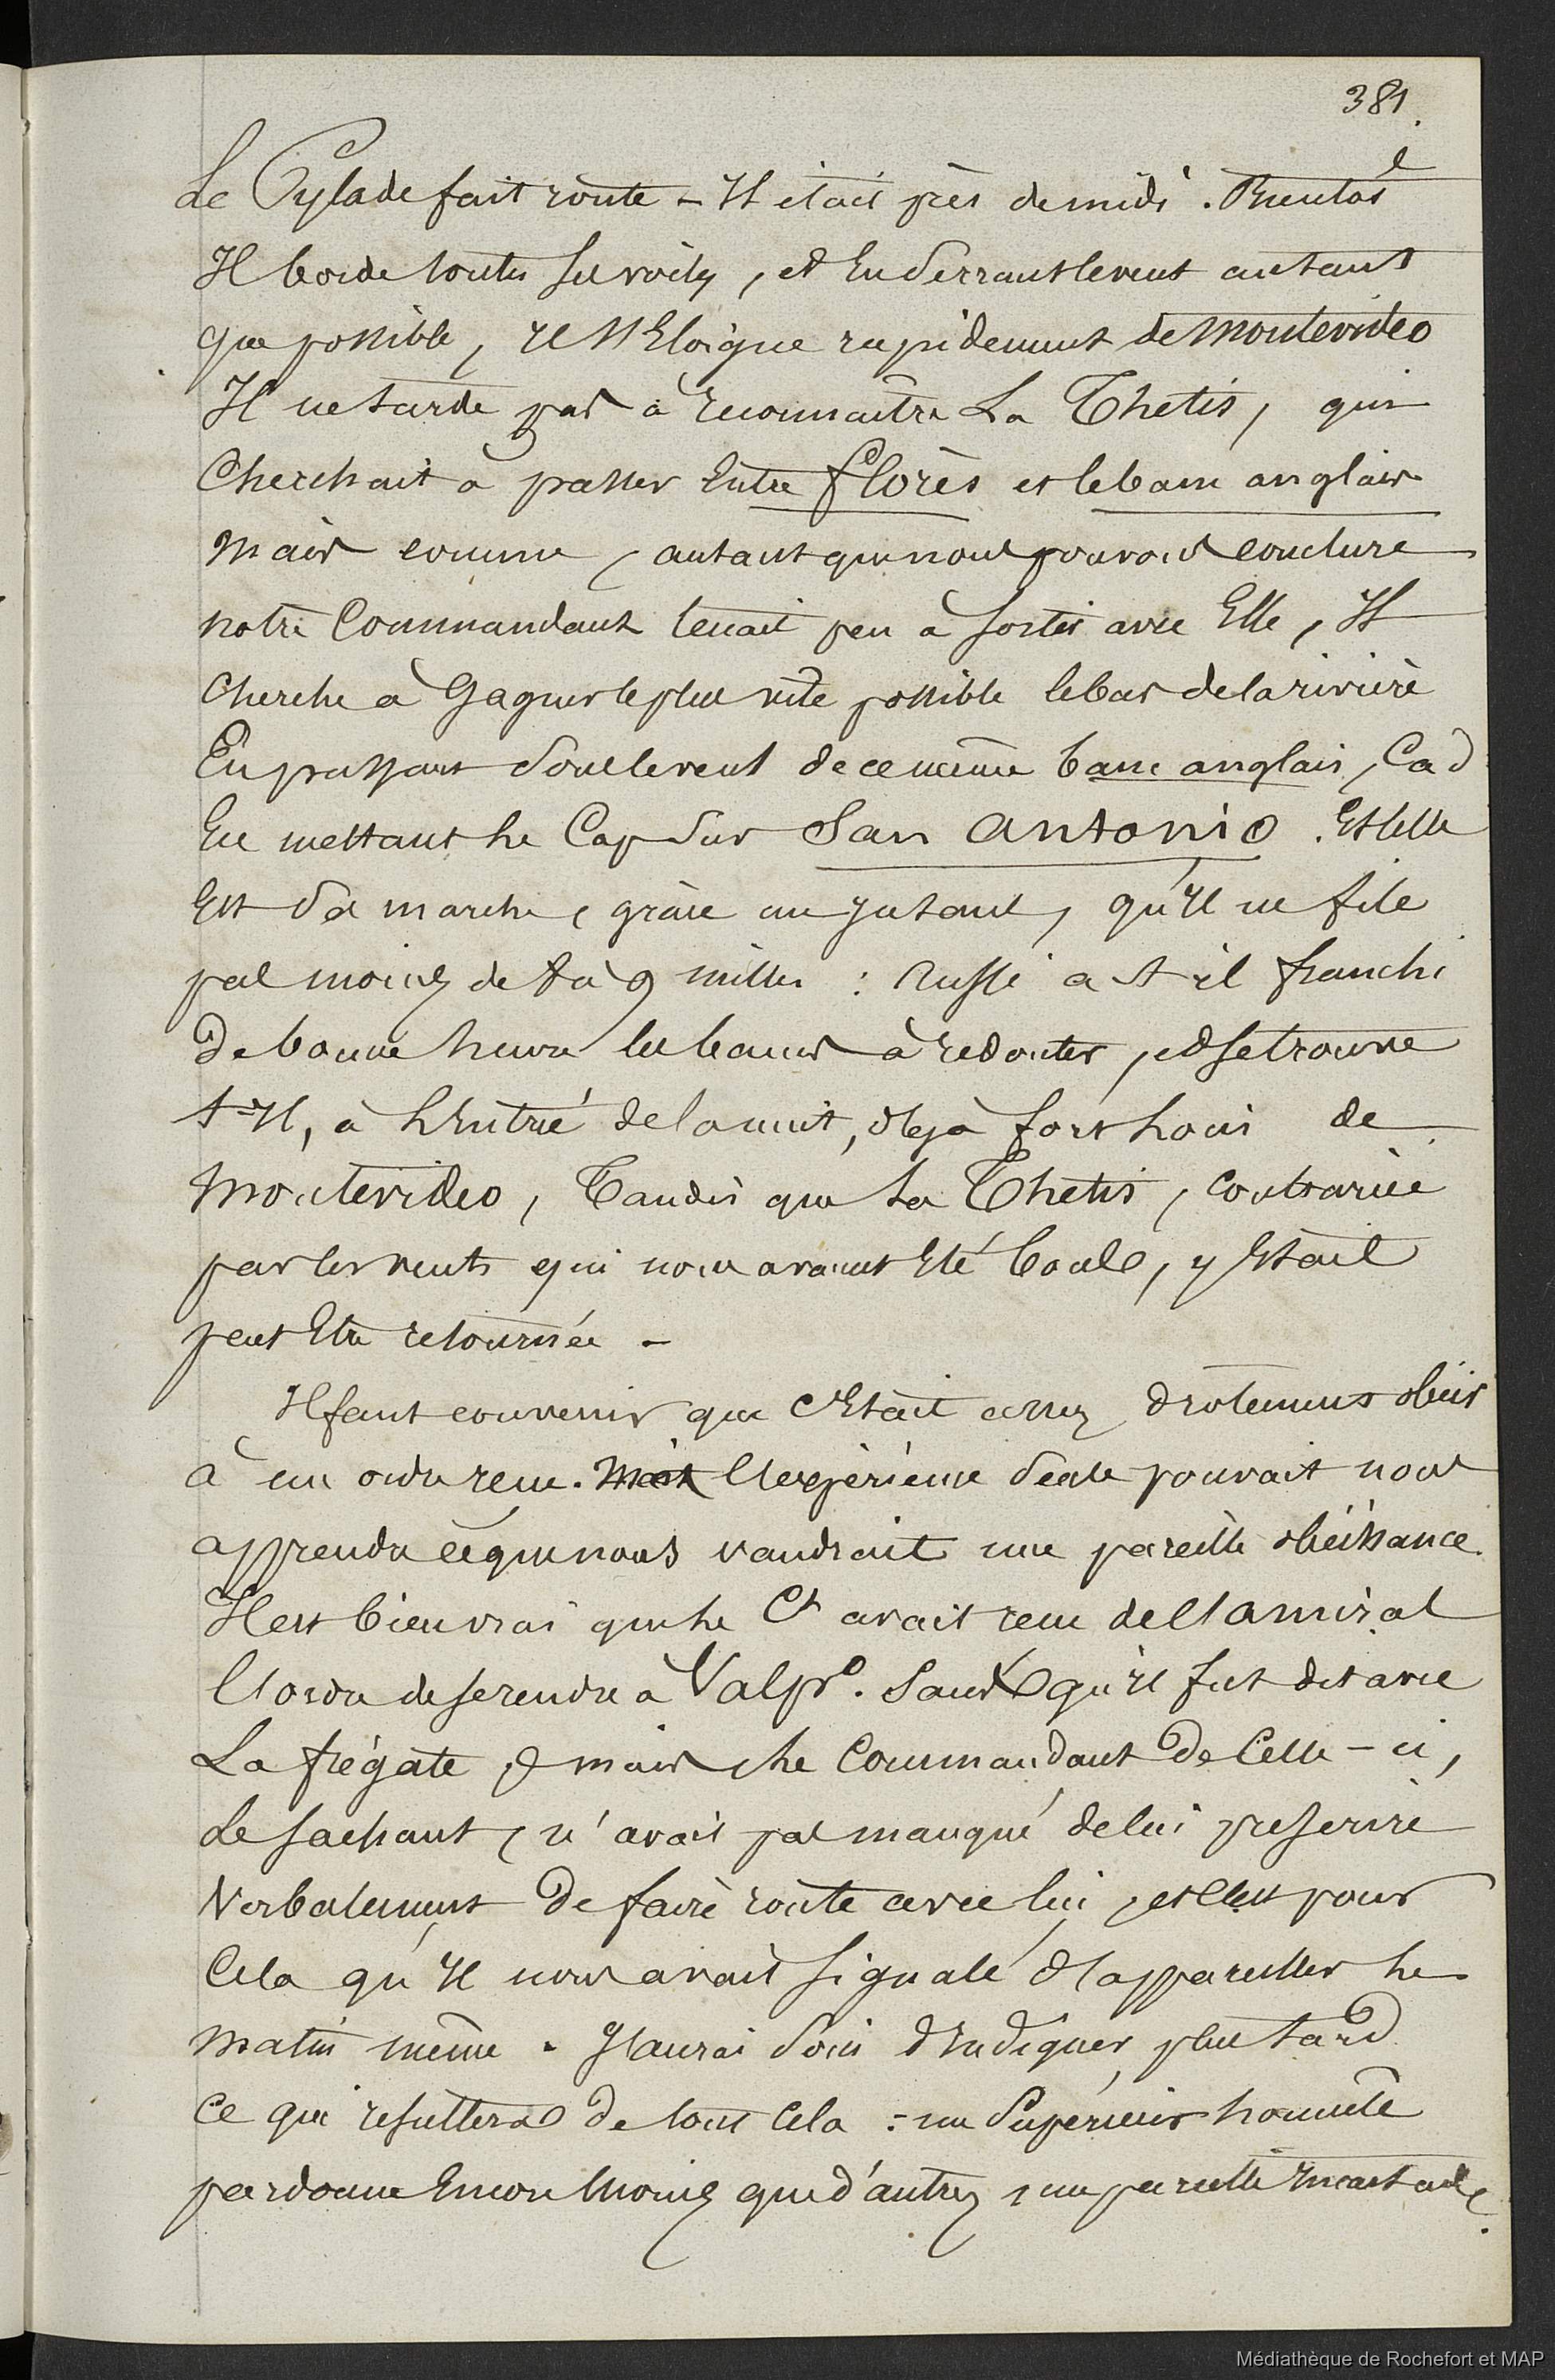 381.
Le Pylade fait route – Il était près de midi. Bientôt
Il borde toutes ses voiles, et En serrant le vent autant
que possible, Il s'Eloigne rapidement de Montevideo
Il ne tarde pas à reconnaître La Thetis, qui
Cherchait à passer Entre florès et le banc anglais
Mais comme, autant que nous pouvons conclure
notre Commandant tenait peu à sortir avec Elle, Il
Cherche à Gagner le plus vite possible le bas de la rivière
En passant sous le vent de ce même banc anglais, Cad
En mettant le Cap sur San Antonio. Et telle
Est sa marche, grâce au jusant, qu'Il ne file
pas moins de 8 à 9 milles : Aussi a t-il franchi
De bonne heure les bancs à redouter, et se trouve
t-Il, à l'Entrée de la nuit, déjà fort loin de
Montevideo, Tandis que La Thetis, contrariée
par les vents qui nous avaient Eté bons, y Etait
peut Etre retournée –
Il faut convenir que c'Etait assez drolement obéir
à un ordre reçu. Mais l'expérience seule pouvait nous
apprendre ce que nous vaudrait une pareille obéissance.
Il est bien vrai que le Ct avait reçu de l'amiral
l'ordre de se rendre à Valpo. Sans qu'il fut dit avec
La frégate ; mais le Commandant De Celle-ci,
Le sachant, n'avait pas manqué de lui prescrire
Verbalement De faire route avec lui, et c'est pour
Cela qu'Il nous avait signalé d'appareiller le
Matin même. J'aurai soin d'Indiquer plus tard
Ce qui résultera De tout Cela : un Supérieur honnête
pardonne Encore Moins que d'autres, une pareille Incartade.
Médiathèque de Rochefort et MAP